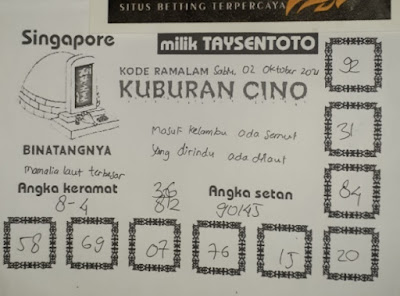 SITUS BETTING TERPERCAYA
Singapore
milik TAYSENTOTO
KODE RAMALAM Sabtu, 02 Oktober 2021
KUBURAN CINO
92
Masuk kelambu ada semut
31
yang dirindu ada dilaut
BINATANGNYA
Mamalia laut terbesar
Angka keramat
8-4
Angka setan
90145
84
58
69
07
76
15
20